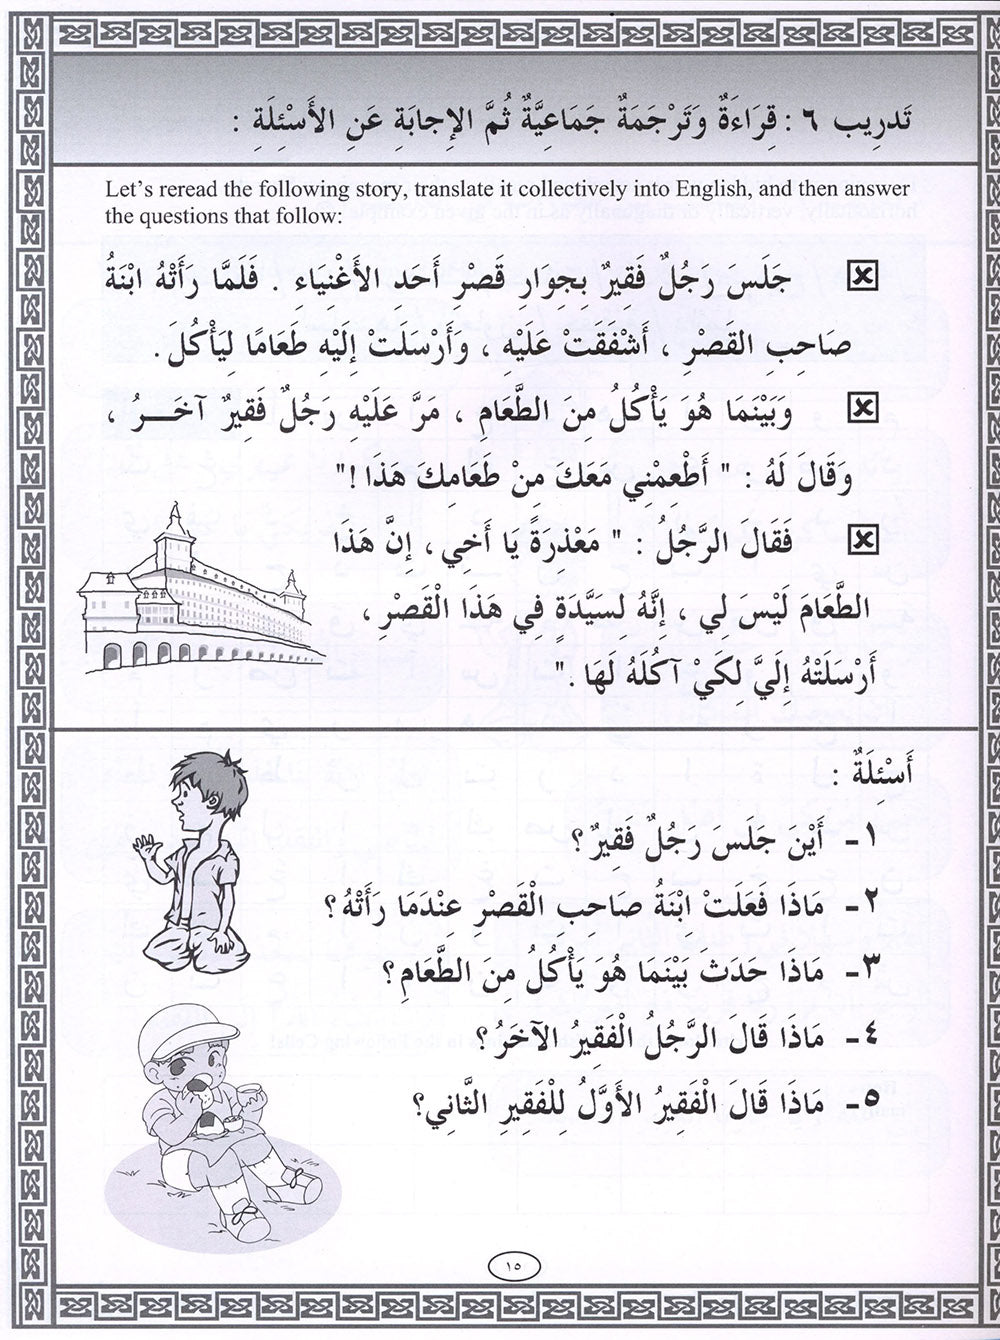 تَدرِيب ٦ : قِرَاءَةٌ وَتَرْجَمَةٌ جَمَاعِيَّةٌ ثُمَّ الإجابَةِ عَنِ الأَسْئِلَةِ :
Let's reread the following story, translate it collectively into English, and then answer
the questions that follow:
جَلَسَ رَجُلٌ فَقِيرٌ بِجِوَارِ قَصْرِ أَحَدِ الأَغْنِيَاء . فَلَمَّا رَأَتْهُ ابْنَةُ
صَاحِبِ القَصرِ ، أَشْفَقَتْ عَلَيْهِ ، وَأَرْسَلَتْ إِلَيْهِ طَعَامًا لِيَأْكُلَ.
وَبَيْنَمَا هُوَ يَأْكُلُ مِنَ الطَّعَامِ ، مَرَّ عَلَيْهِ رَجُلٌ فَقِيرٌ آخَـــرُ ،
وقَالَ لَهُ : " أَطْعِمْنِي مَعَكَ مِنْ طَعَامِكَ هَذا !"
فَقَالَ الرَّجُلُ : " مَعْذِرَةً يَا أَخِي ، إنَّ هَذَا
الطَّعَامَ لَيْسَ لِي ، إنَّهُ لِسَيِّدَة فِي هَذَا الْقَصْرِ ،
أَرْسَلَتْهُ إلَيَّ لِكَيْ آكُلَهُ لَهَا ."
أَسْئِلَةٌ :
١ - أَيْنَ جَلَسَ رَجُلٌ فَقِيرٌ ؟
٢ - مَاذَا فَعَلَتْ ابْنَةُ صَاحبِ الْقَصْرِ عِنْدَمَا رَأَتْهُ ؟
٣ - مَاذَا حَدَثَ بَيْنَما هُوَ يَأْكُلُ مِنَ الطَّعَامِ ؟
٤ - مَاذَا قَالَ الرَّجُلُ الْفَقِيرُ الآخَرُ ؟
٥ - مَاذَا قَالَ الْفَقِيرُ الأَوَّلُ لِلْفَقِيرِ الثَّانِي ؟
١٥